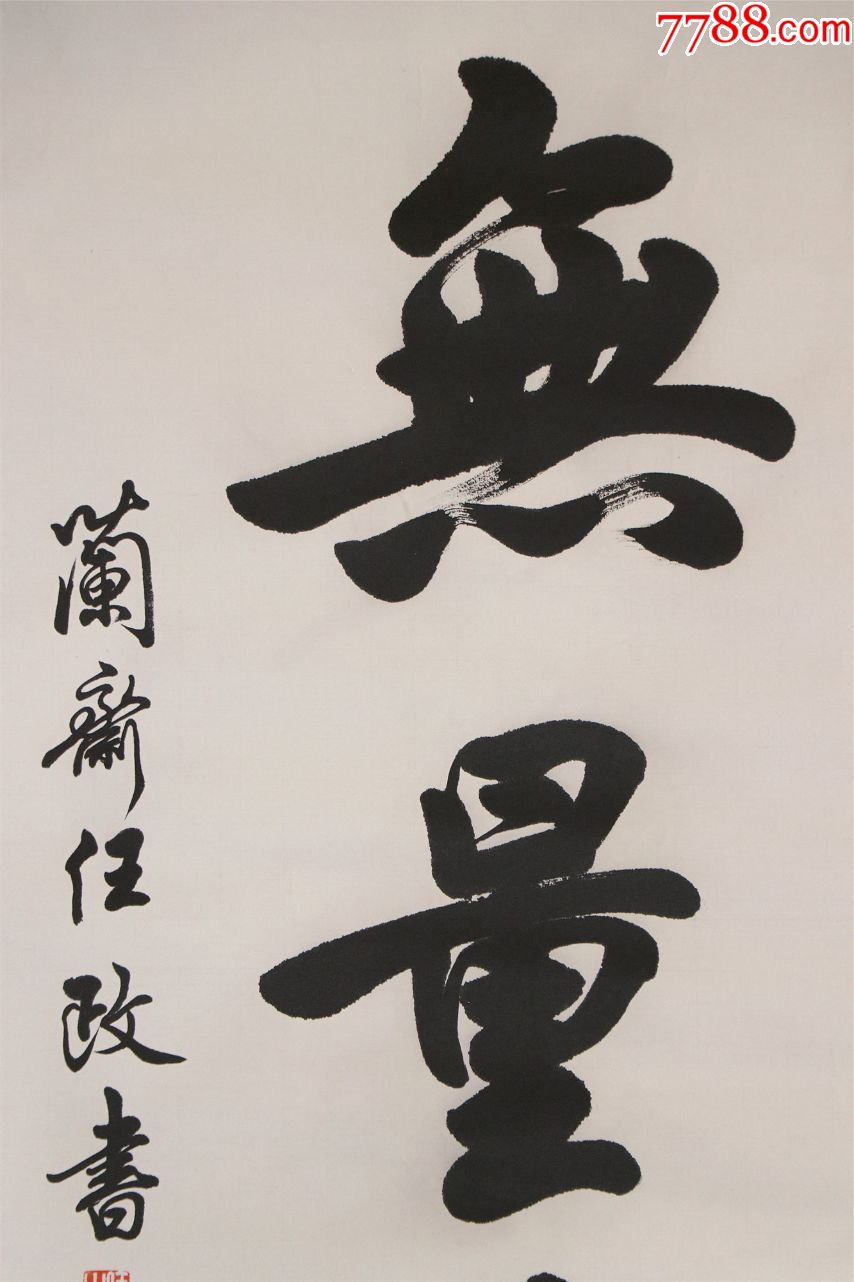 7788.com
無量
蘭齋任政書